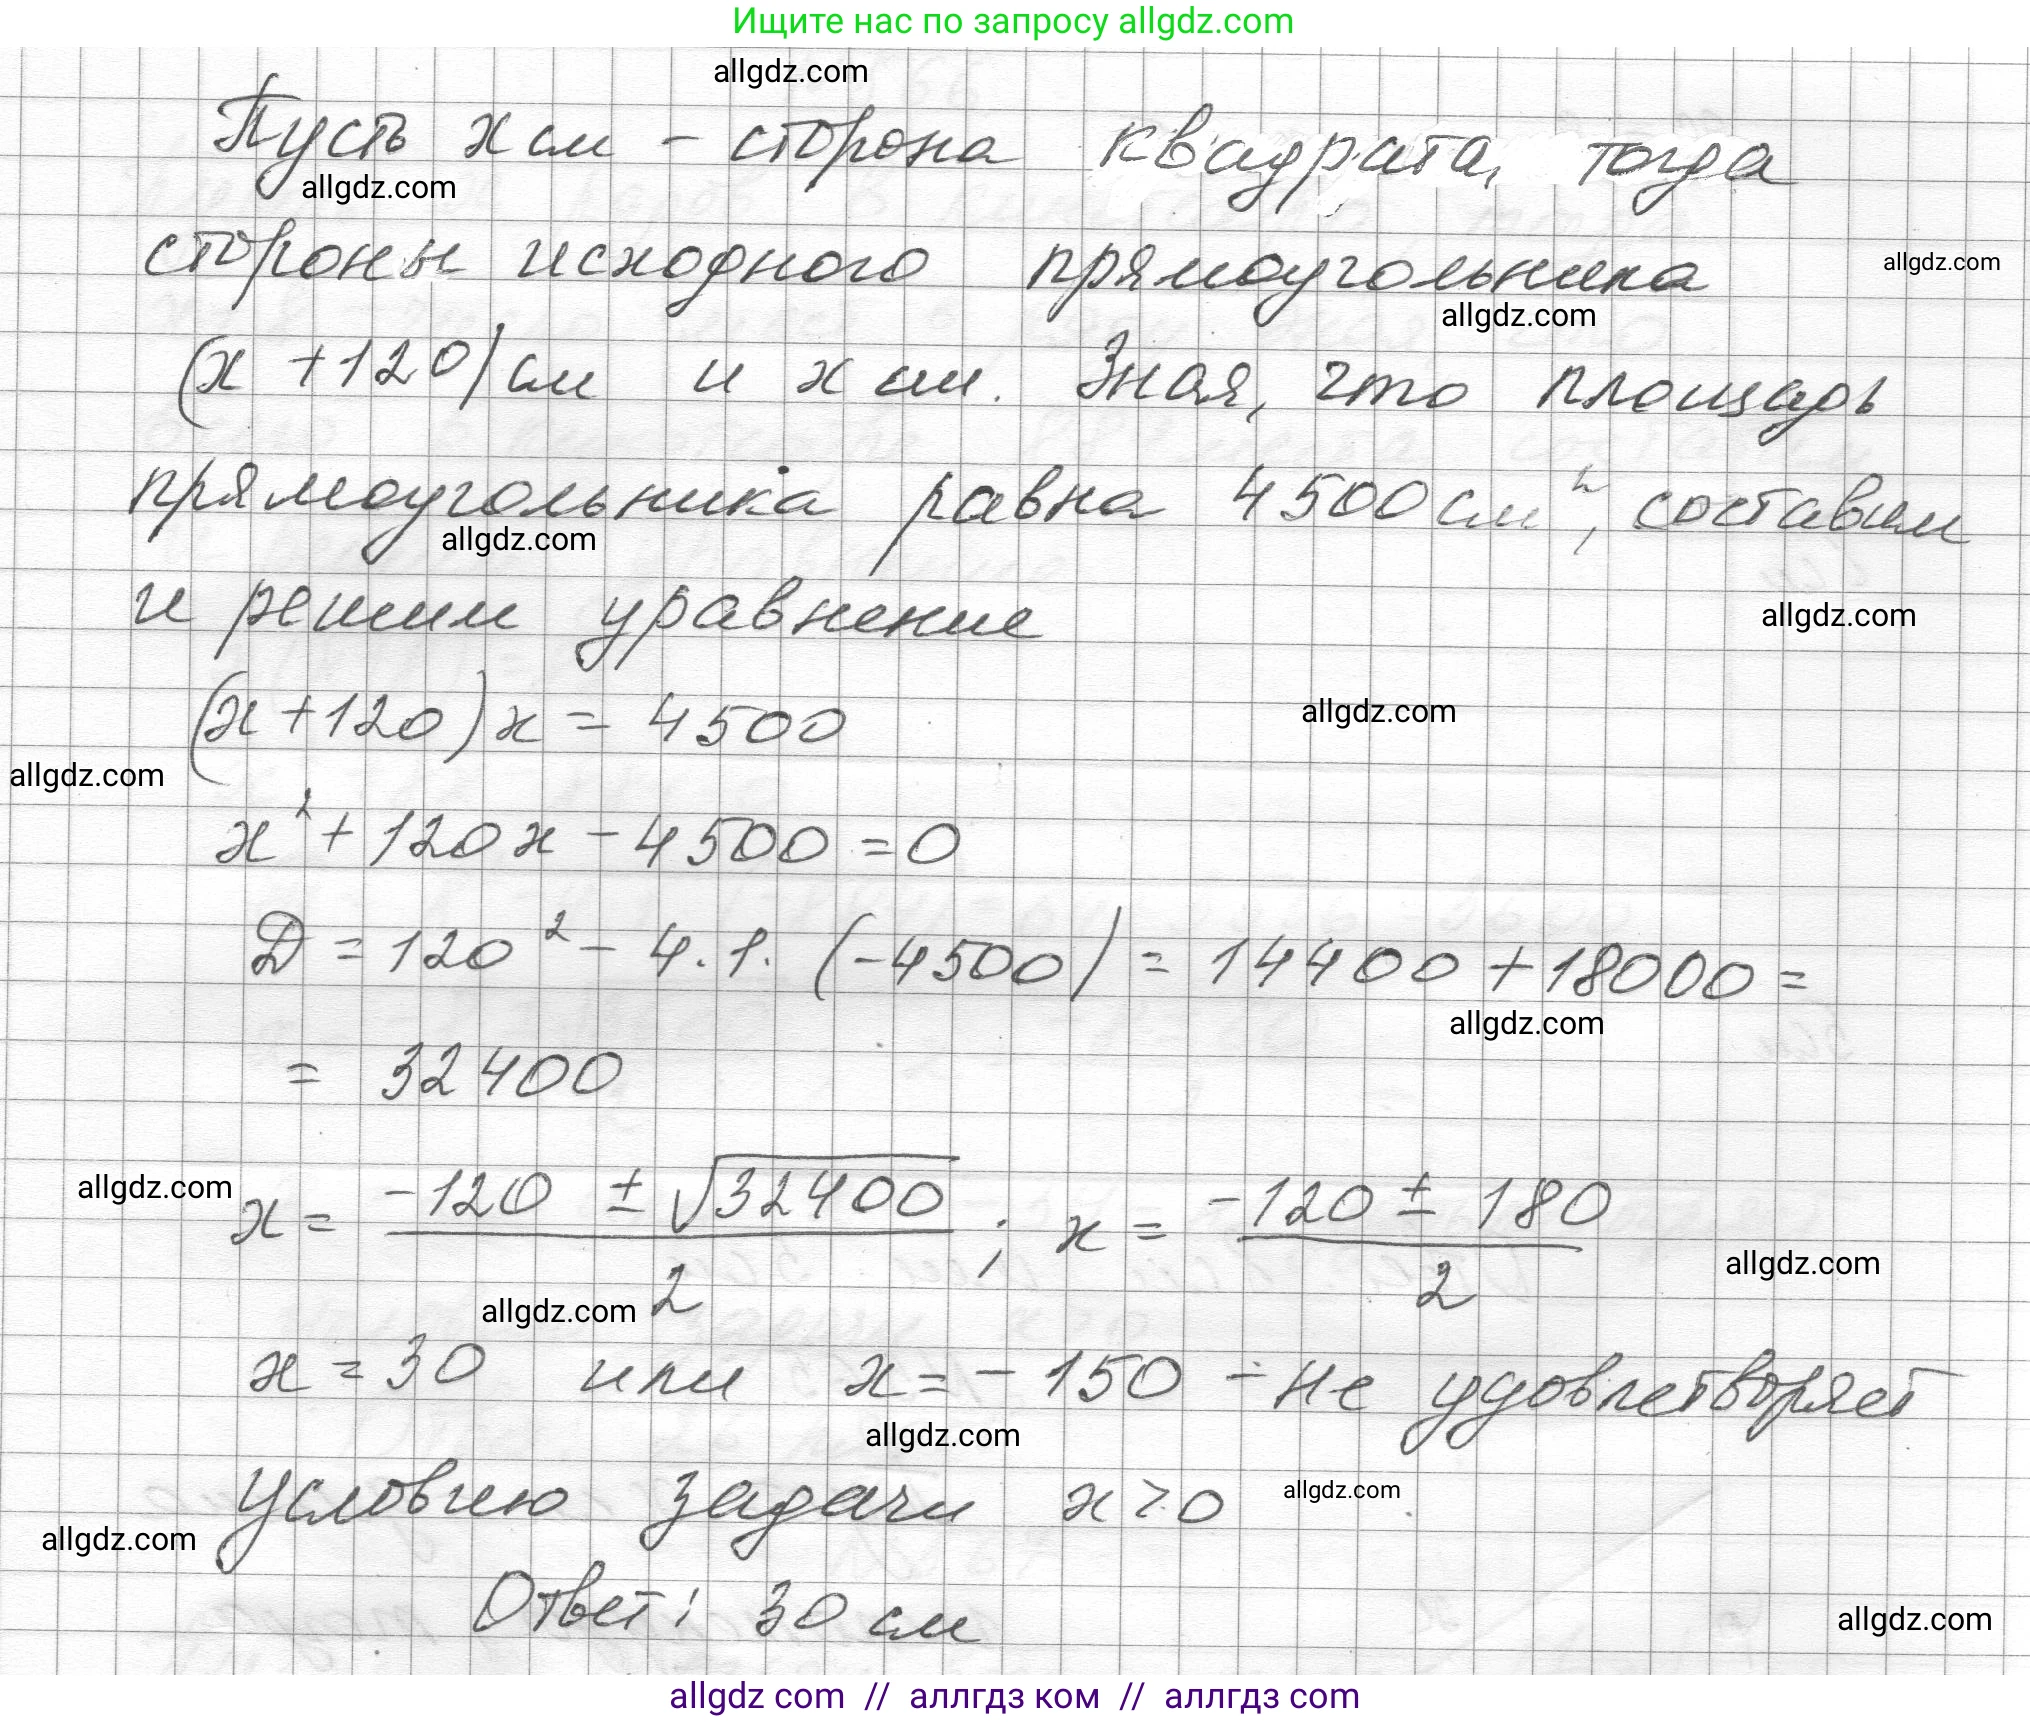 Ищите нас по запросу allgdz.com
allgdz.com
Пусть x см - сторона квадрата, тогда
allgdz.com
стороны исходного прямоугольника
allgdz.com
allgdz.com
(x + 120) см и x см. Зная, что площадь
прямоугольника равна 4500 см², составим
allgdz.com
и решим уравнение
allgdz.com
(x+120)x = 4500
allgdz.com
allgdz.com
x² + 120x - 4500 = 0
D = 120² - 4·1·(-4500) = 14400 + 18000 =
allgdz.com
= 32400
allgdz.com
x = (-120 ± √32400)/2 ; x = (-120 ± 180)/2
allgdz.com
allgdz.com
x = 30 или x = -150 - не удовлетворяет
allgdz.com
условию задачи x > 0
allgdz.com
allgdz.com
Ответ: 30 см
allgdz.com
allgdz com // аллгдз ком // аллгдз com